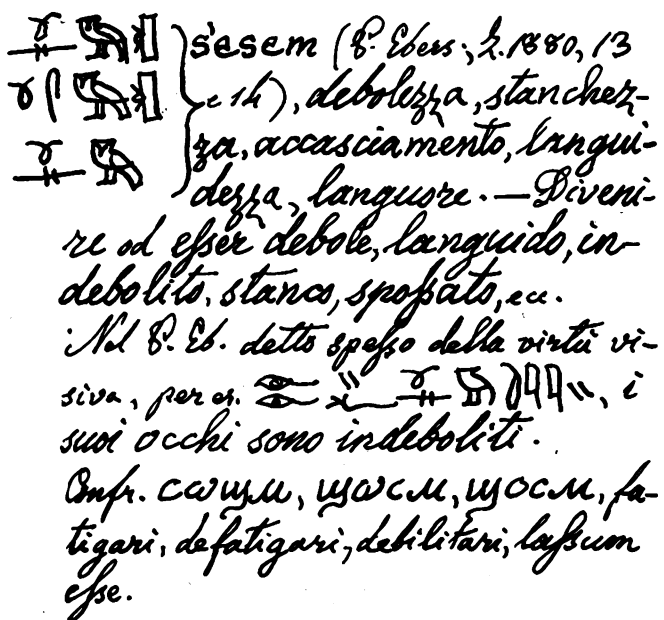 sesem (P. Ebers; Z. 1880, 13
e 14), debolezza, stanchez-
za, accasciamento, langui-
dezza, languore. — Diveni-
re od esser debole, languido, in-
debolito, stanco, spossato, ecc.
Nel P. Eb. detto spesso della virtù vi-
siva, per es. , i
suoi occhi sono indeboliti.
Confr. ⲥⲱϣⲙ, ϣⲱⲥⲙ, ϣⲟⲥⲙ, fa-
tigari, defatigari, debilitari, lassum
esse.